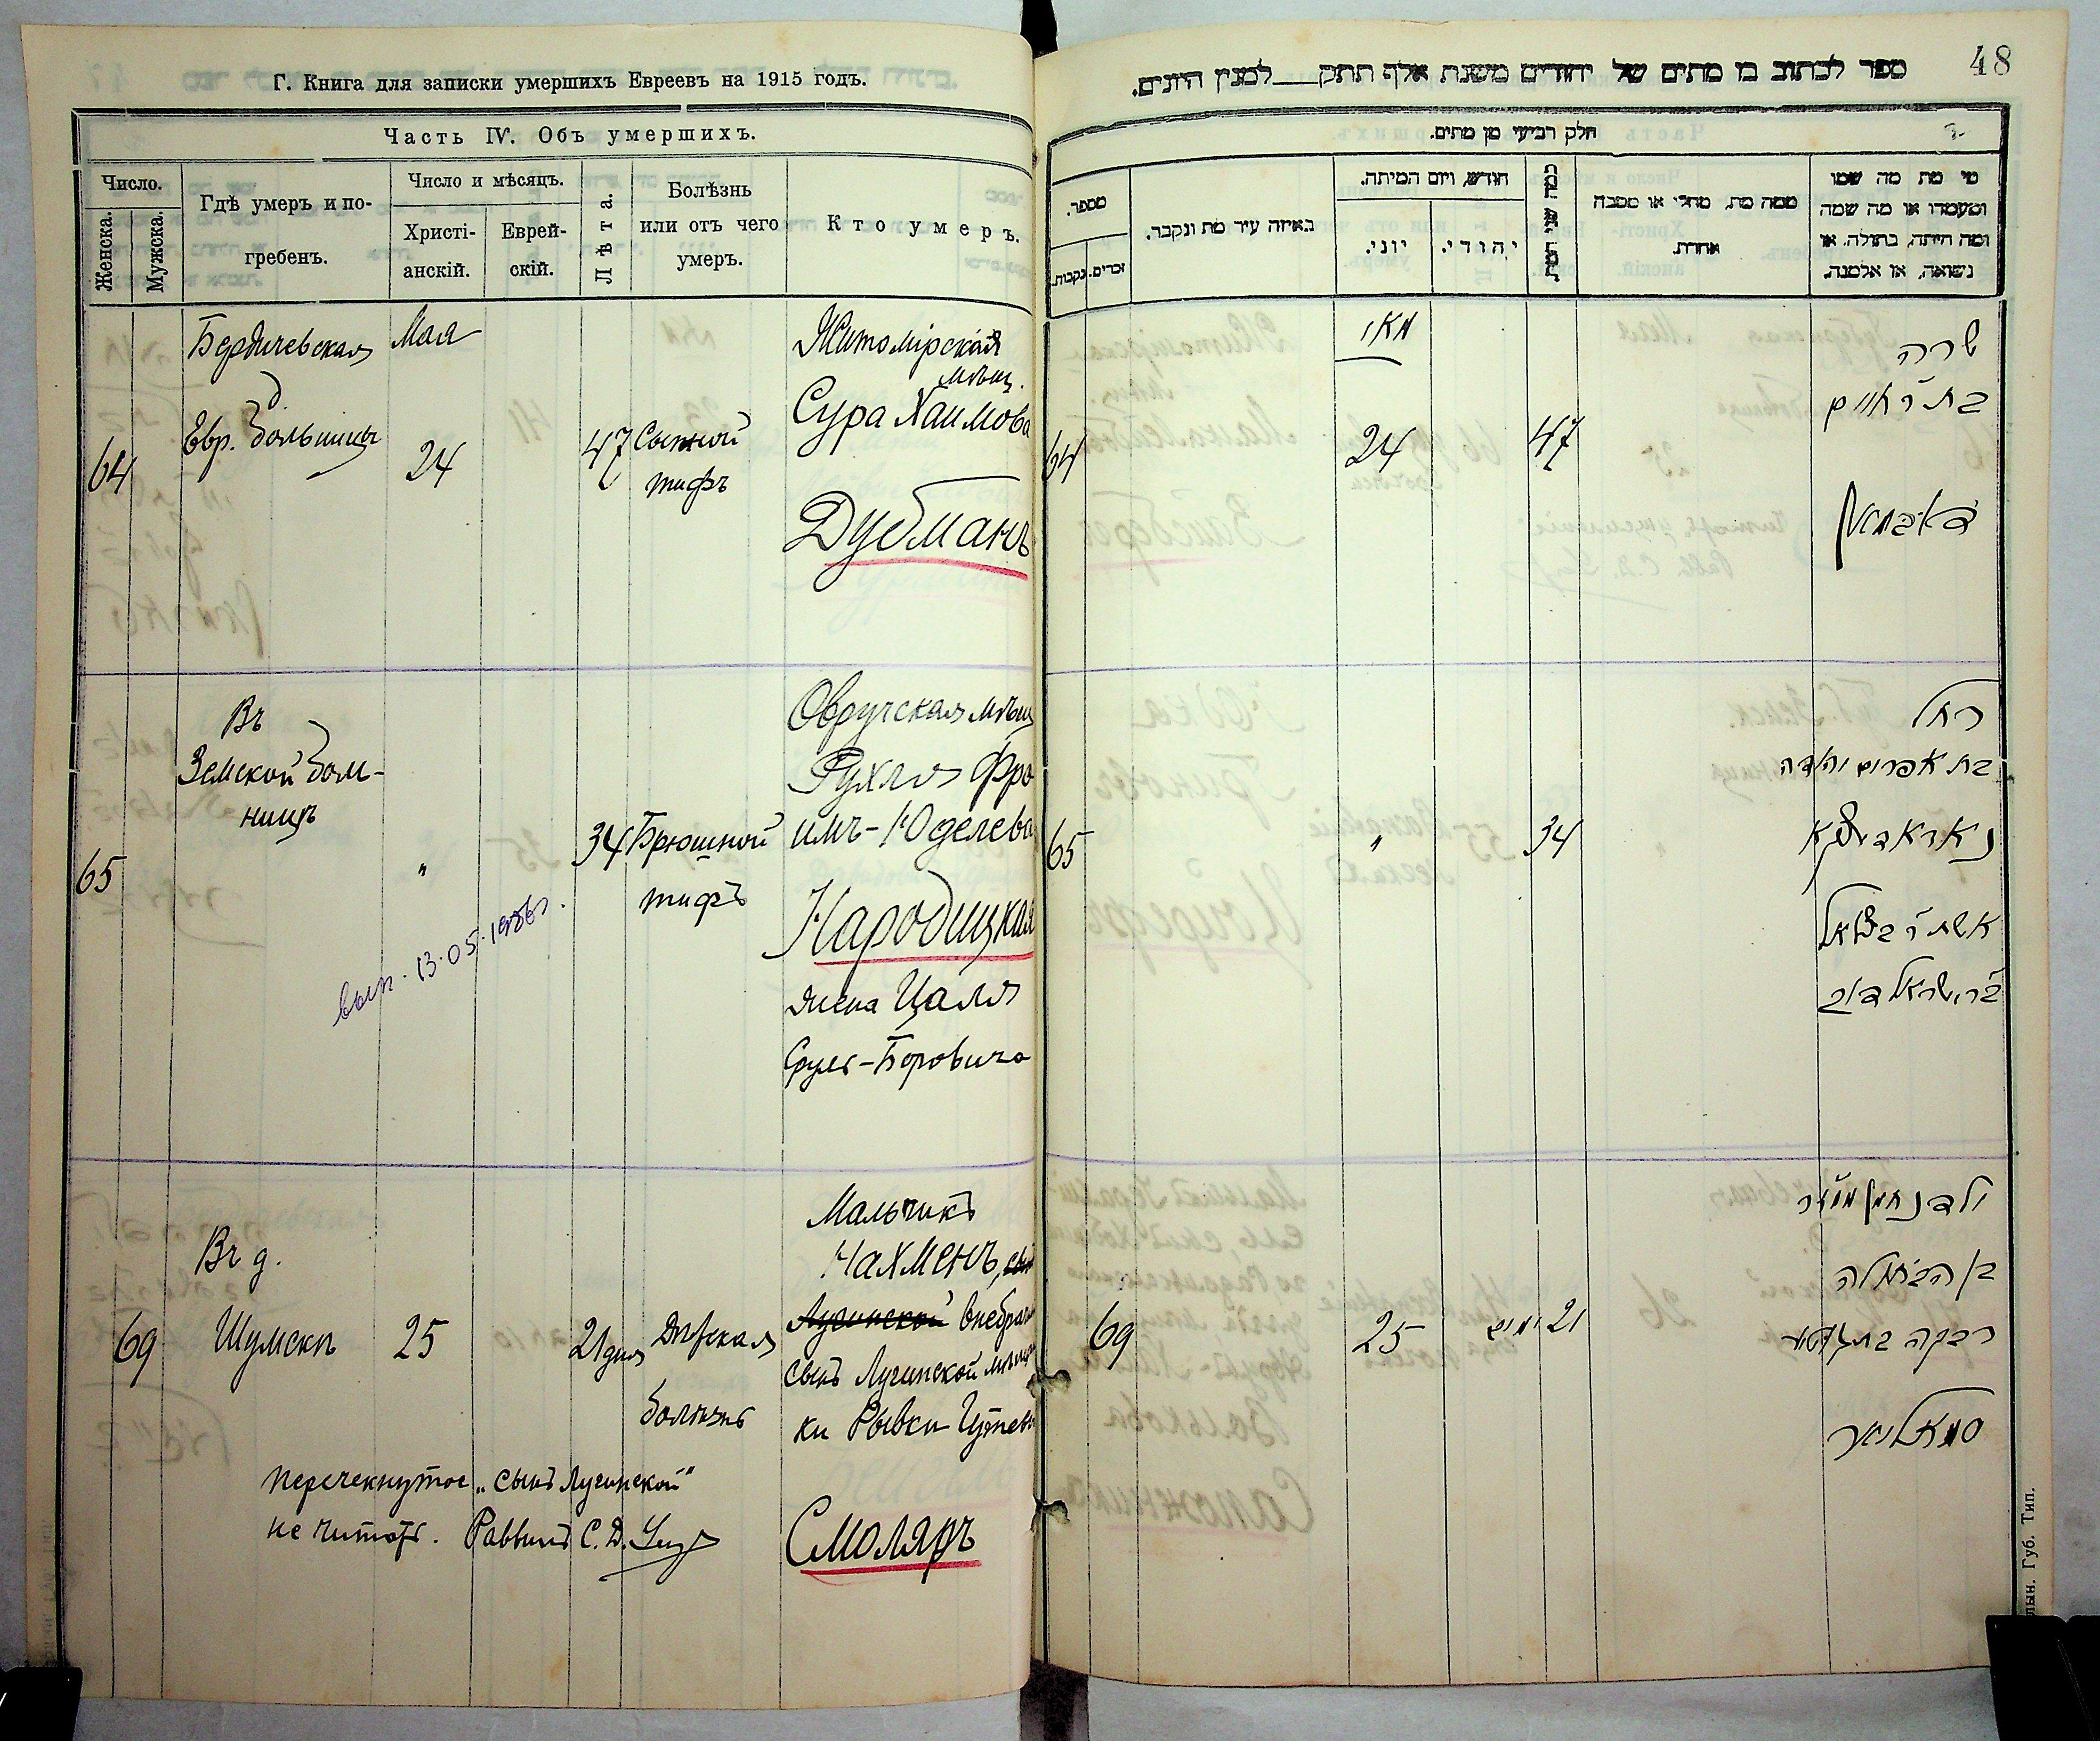 Г. Книга для записки умершихъ Евреевъ на 1915 годъ.
Часть IV. Объ умершихъ.
Число.
Женска.
Мужска.
Гдѣ умеръ и по-
гребенъ.
Число и мѣсяцъ.
Христі-
анскій.
Еврей-
скій.
Лѣта.
Болѣзнь
или отъ чего
умеръ.
Кто умеръ.
64
Бердичевская
Евр. больница
Мая
24
47
Сыпной
тифъ
Житомірская
мѣщ.
Сура Хаимова
Дубманъ
65
Въ
Земской боль-
ницѣ
"
34
Брюшной
тифъ
Овручская мѣщ
Рухля Фро
имъ-Юделева
Народицкая
жена Цаля
Сруль-Беровича
вып. 13.05.
69
Въ д.
Шумскъ
25
21 дня
Дѣтская
болѣзнь
Мальчикъ
Нахменъ, сынъ
Лугинской внебрачн
сынъ Лугинской мѣщан
ки Рывки
Смоляръ
Перечекнутое „сынъ Лугинской"
не читать. Раввинъ С. Д.
48
ספר לכתוב בו מתים של יהודים משנת אלף תתק___למנין היונים.
חלק רביעי מן מתים.
מספר.
נקבות.
זכרים.
באיזה עיר מת ונקבר.
חודש, ויום המיתה.
יוני.
יהודי.
ממה מת, מחלי או מסבה
אחרת.
מי מת מה שמו
ומעמדו או מה שמה
ומה היתה, בתולה, או
נשואה, או אלמנה.
64
מאי
24
47
שרה
בת ר' חיים
דובמאן
65
"
34
רחל
בת אפרים יהודה
נאראדיצקא
אשת ר' בצלאל
בר' ישראל דוב
69
25
21 ימים
ילד נחמן
בן הבתולה
רבקה בת
סמאליאר
лын. Губ. Тип.